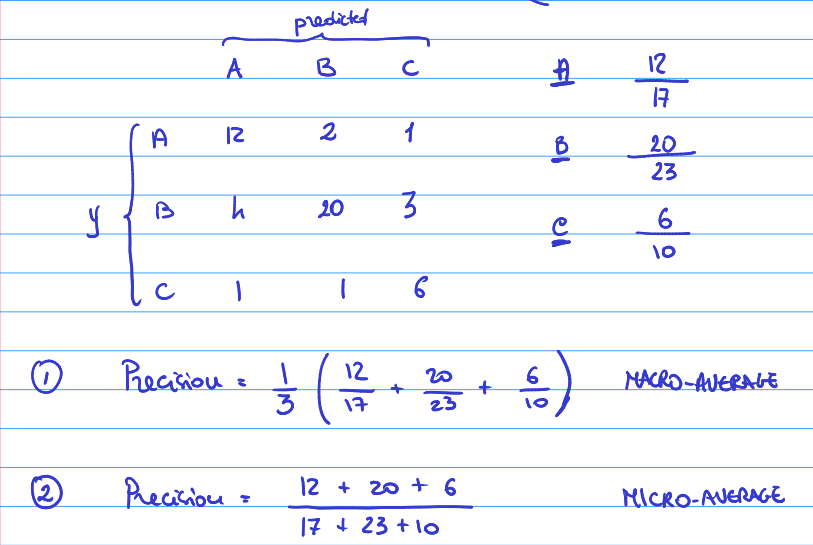 predicted
A B C
A 12 2 1
y B 4 20 3
C 1 1 6
A 12/17
B 20/23
C 6/10
① Precision = 1/3 ( 12/17 + 20/23 + 6/10 ) MACRO-AVERAGE
② Precision = (12 + 20 + 6)/(17 + 23 + 10) MICRO-AVERAGE